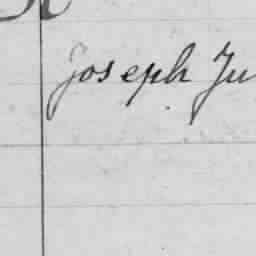 Joseph Ju